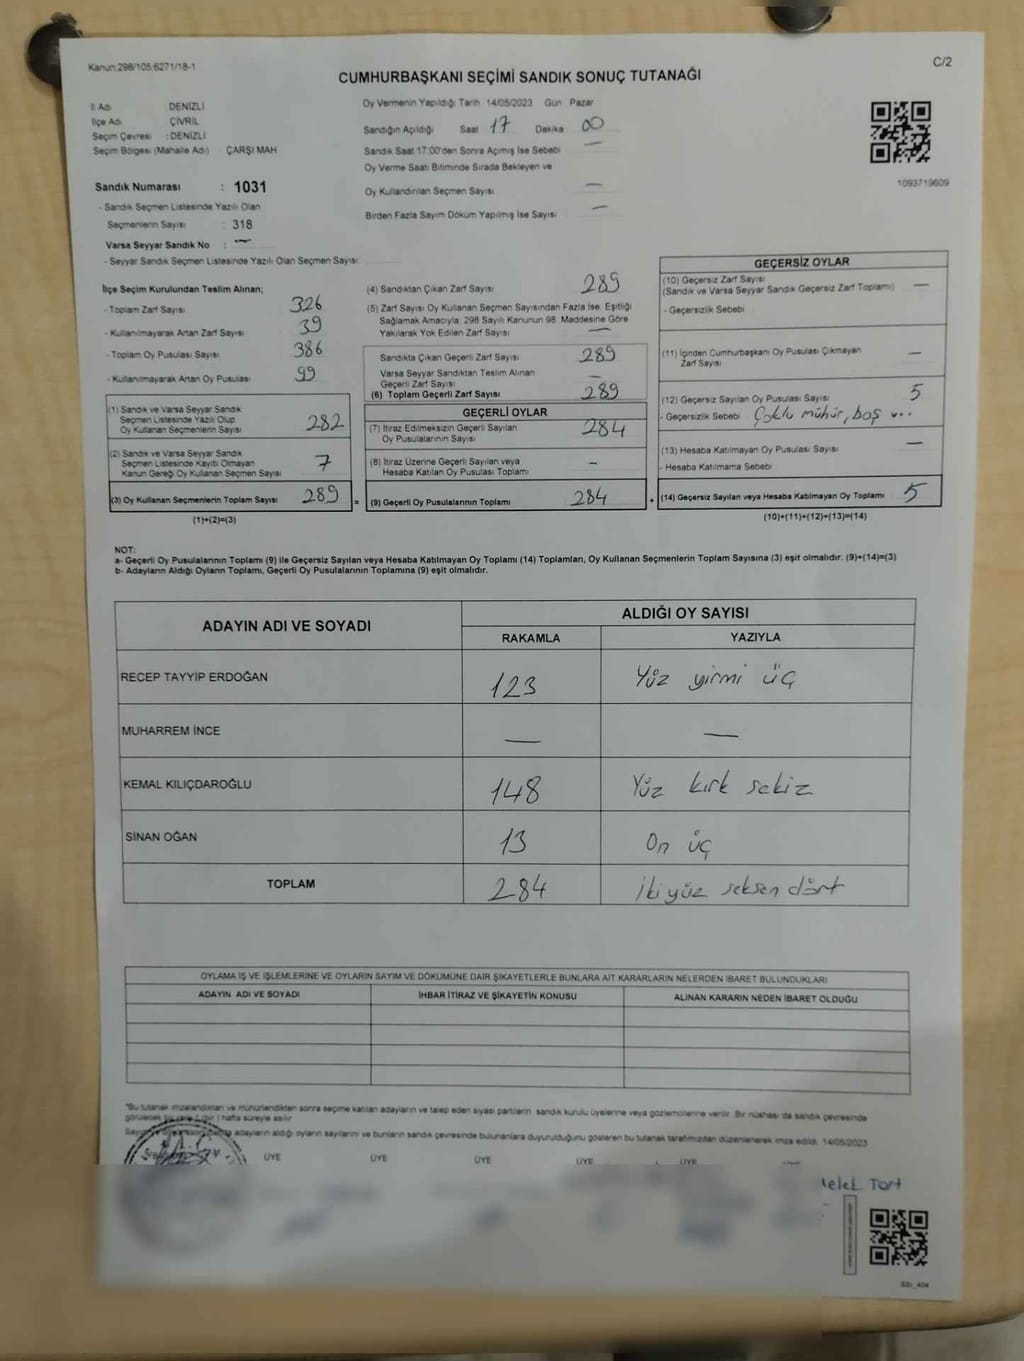 Kanun:298/105,6271/18-1
C/2
CUMHURBAŞKANI SEÇİMİ SANDIK SONUÇ TUTANAĞI
İl Adı DENİZLİ
İlçe Adı ÇİVRİL
Seçim Çevresi : DENİZLİ
Seçim Bölgesi (Mahalle Adı) ÇARŞI MAH
Sandık Numarası : 1031
- Sandık Seçmen Listesinde Yazılı Olan
Seçmenlerin Sayısı : 318
Varsa Seyyar Sandık No : —
- Seyyar Sandık Seçmen Listesinde Yazılı Olan Seçmen Sayısı:
Oy Vermenin Yapıldığı Tarih 14/05/2023 Gün Pazar
Sandığın Açıldığı Saat 17 Dakika 00
Sandık Saat 17:00'den Sonra Açımış İse Sebebi —
Oy Verme Saati Bitiminde Sırada Bekleyen ve
Oy Kullandırılan Seçmen Sayısı —
Birden Fazla Sayım Döküm Yapılmış İse Sayısı —
1093719609
İlçe Seçim Kurulundan Teslim Alınan;
- Toplam Zarf Sayısı 326
- Kullanılmayarak Artan Zarf Sayısı 39
- Toplam Oy Pusulası Sayısı 386
- Kullanılmayarak Artan Oy Pusulası 99
(1) Sandık ve Varsa Seyyar Sandık
Seçmen Listesinde Yazılı Olup
Oy Kullanan Seçmenlerin Sayısı 282
(2) Sandık ve Varsa Seyyar Sandık
Seçmen Listesinde Kayıtlı Olmayan
Kanun Gereği Oy Kullanan Seçmen Sayısı 7
(3) Oy Kullanan Seçmenlerin Toplam Sayısı 289 =
(1)+(2)=(3)
(4) Sandıktan Çıkan Zarf Sayısı 289
(5) Zarf Sayısı Oy Kullanan Seçmen Sayısından Fazla İse, Eşitliği
Sağlamak Amacıyla, 298 Sayılı Kanunun 98. Maddesine Göre
Yakılarak Yok Edilen Zarf Sayısı —
Sandıkta Çıkan Geçerli Zarf Sayısı 289
Varsa Seyyar Sandıktan Teslim Alınan
Geçerli Zarf Sayısı —
(6) Toplam Geçerli Zarf Sayısı 289
GEÇERLİ OYLAR
(7) İtiraz Edilmeksizin Geçerli Sayılan
Oy Pusulalarının Sayısı 284
(8) İtiraz Üzerine Geçerli Sayılan veya
Hesaba Katılan Oy Pusulası Toplamı —
(9) Geçerli Oy Pusulalarının Toplamı 284 +
GEÇERSİZ OYLAR
(10) Geçersiz Zarf Sayısı
(Sandık ve Varsa Seyyar Sandık Geçersiz Zarf Toplamı) —
- Geçersizlik Sebebi
(11) İçinden Cumhurbaşkanı Oy Pusulası Çıkmayan
Zarf Sayısı —
(12) Geçersiz Sayılan Oy Pusulası Sayısı 5
- Geçersizlik Sebebi Çoklu mühür, boş ...
(13) Hesaba Katılmayan Oy Pusulası Sayısı —
- Hesaba Katılmama Sebebi
(14) Geçersiz Sayılan veya Hesaba Katılmayan Oy Toplamı 5
(10)+(11)+(12)+(13)=(14)
NOT:
a- Geçerli Oy Pusulalarının Toplamı (9) ile Geçersiz Sayılan veya Hesaba Katılmayan Oy Toplamı (14) Toplamları, Oy Kullanan Seçmenlerin Toplam Sayısına (3) eşit olmalıdır. (9)+(14)=(3)
b- Adayların Aldığı Oyların Toplamı, Geçerli Oy Pusulalarının Toplamına (9) eşit olmalıdır.
ADAYIN ADI VE SOYADI
ALDIĞI OY SAYISI
RAKAMLA YAZIYLA
RECEP TAYYİP ERDOĞAN 123 Yüz yirmi üç
MUHARREM İNCE — —
KEMAL KILIÇDAROĞLU 148 Yüz kırk sekiz
SİNAN OĞAN 13 On üç
TOPLAM 284 İkiyüz seksen dört
OYLAMA İŞ VE İŞLEMLERİNE VE OYLARIN SAYIM VE DÖKÜMÜNE DAİR ŞİKAYETLERLE BUNLARA AİT KARARLARIN NELERDEN İBARET BULUNDUKLARI
ADAYIN ADI VE SOYADI İHBAR İTİRAZ VE ŞİKAYETİN KONUSU ALINAN KARARIN NEDEN İBARET OLDUĞU
"Bu tutanak imzalandıktan ve mühürlendikten sonra seçime katılan adayların ve talep eden siyasi partilerin sandık kurulu üyelerine veya gözlemcilerine verilir. Bir nüshası da sandık çevresinde
hafta süreyle asılır
adayların aldığı oyların sayılarını ve bunların sandık çevresinde bulunanlara duyurulduğunu gösteren bu tutanak tarafımızdan düzenlenerek imza edildi. 14/05/2023
ÜYE ÜYE ÜYE ÜYE ÜYE
Tort